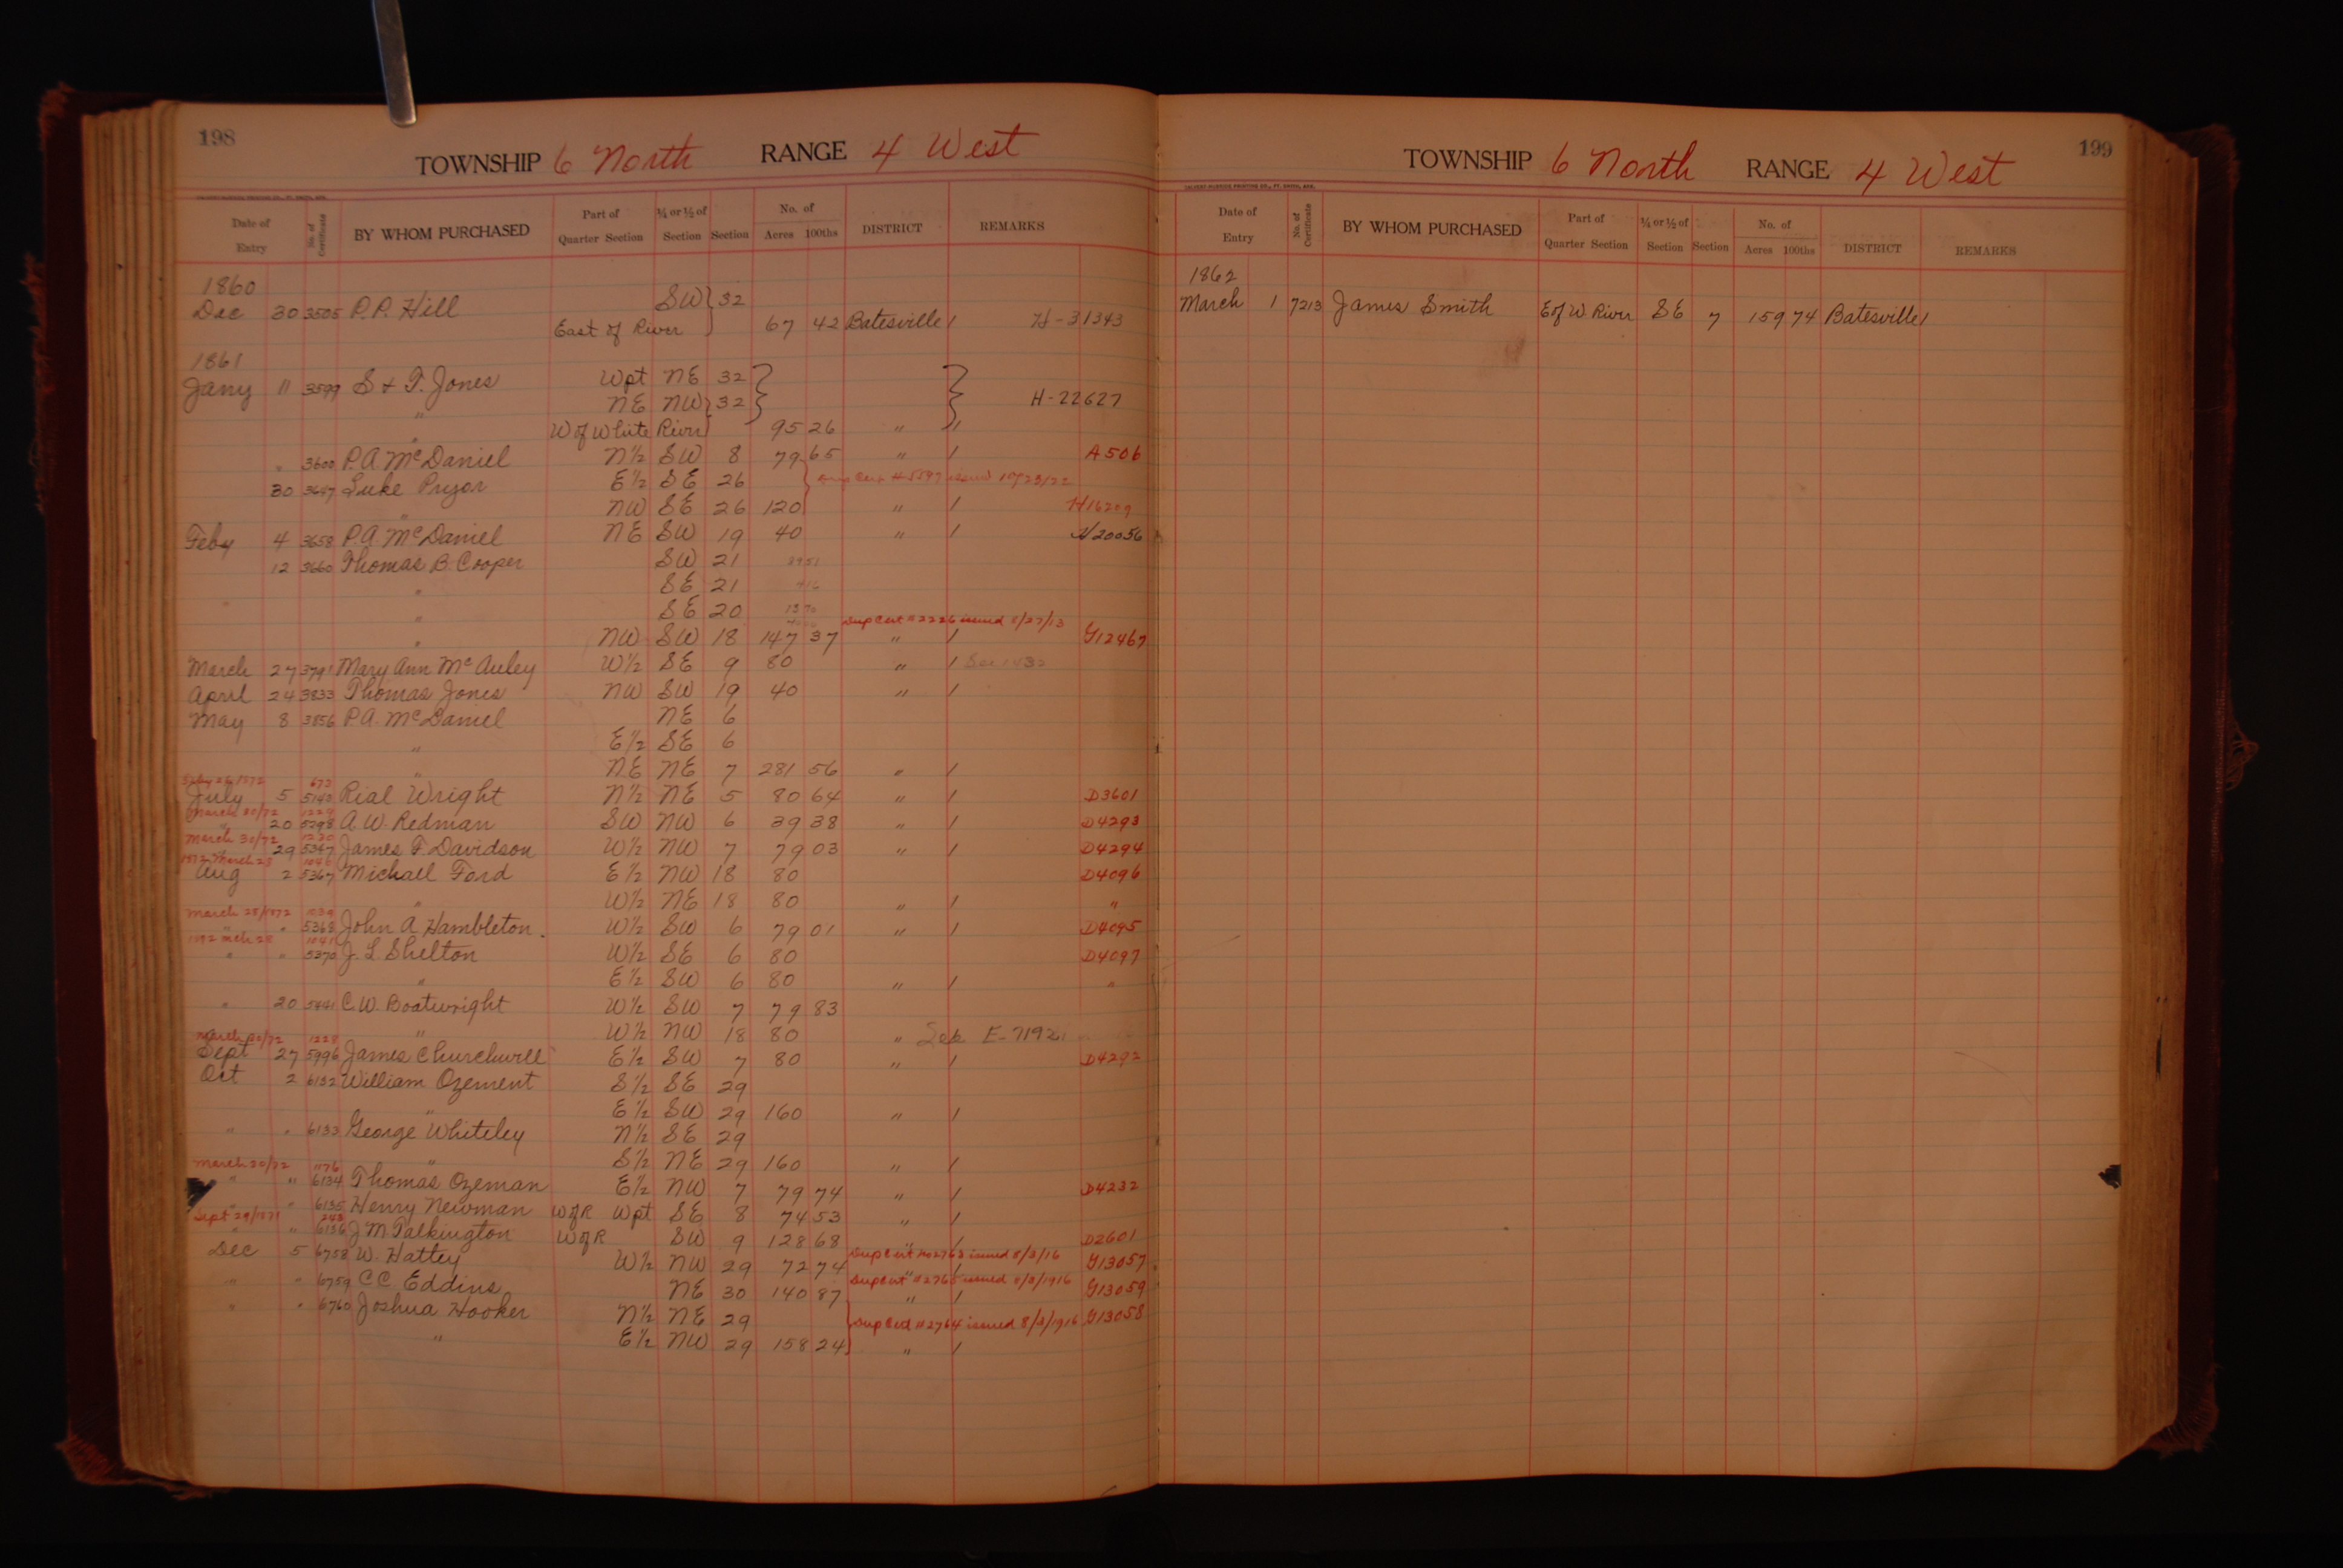 198
TOWNSHIP 6 North RANGE 4 West
Date of Entry No. of Certificate BY WHOM PURCHASED Part of Quarter Section ¼ or ½ of Section Section No. of Acres 100ths DISTRICT REMARKS
1860
Dec 30 3505 P.P. Hill SW 32
East of River 67 42 Batesville / H-31343
1861
Jany 11 3599 S & T. Jones Wpt NE 32
" NE NW 32 H-22627
" W of White River 95 26 " /
" 3600 P.A. McDaniel N½ SW 8 79 65 " / A506
30 3647 Luke Pryor E½ SE 26 Dup Cert issued
" NW SE 26 120 " / H16209
Feby 4 3658 P.A. McDaniel NE SW 19 40 " / H20056
12 3660 Thomas B. Cooper SW 21
" SE 21
" SE 20
Dup Cert #2226 issued 8/27/13
" NW SW 18 147 37 " / G12467
March 27 3791 Mary Ann McAuley W½ SE 9 80 " /
April 24 3833 Thomas Jones NW SW 19 40 " /
May 8 3856 P.A. McDaniel NE 6
" E½ SE 6
" NE NE 7 281 56 " /
Feby 26 1872 673
July 5 5143 Rial Wright N½ NE 5 80 64 " / D3601
March 30/72 1229
" 20 5298 A.W. Redman SW NW 6 39 38 " / D4293
March 30/72 1230
" 29 5347 James F. Davidson W½ NW 7 79 03 " / D4294
1872 March 28 1040
Aug 2 5367 Michall Ford E½ NW 18 80 D4096
" W½ NE 18 80 " / "
March 28/1872 1039
" " 5368 John A Hambleton. W½ SW 6 79 01 " / D4095
1872 Mch 28 1041
" " 5370 J.L. Shelton W½ SE 6 80 D4097
" E½ SW 6 80 " / "
" 20 5441 C.W. Boatwright W½ SW 7 79 83
" W½ NW 18 80 " / E-7192
March 30/72 1228
Sept 27 5996 James Churchwell E½ SW 7 80 " / D4292
Oct 2 6132 William Ozement S½ SE 29
" E½ SW 29 160 " /
" " 6133 George Whiteley N½ SE 29
" S½ NE 29 160 " /
March 30/72 1176
" " 6134 Thomas Ozeman E½ NW 7 79 74 " / D4232
" " 6135 Henry Newman W of R Wpt SE 8 74 53 " /
Sept 29/1871 248
" " 6136 J M Palkington W of R SW 9 128 68 " / D2601
Dup Cert #2763 issued 8/3/16
Dec 5 6758 W. Hattey W½ NW 29 72 74 " / G13057
Dup Cert #2765 issued 8/3/1916
" " 6759 C.C. Eddins NE 30 140 87 " / G13059
" " 6760 Joshua Hooker N½ NE 29 Dup Cert #2764 issued 8/3/1916 G13058
" E½ NW 29 158 24 " /
199
TOWNSHIP 6 North RANGE 4 West
Date of Entry No. of Certificate BY WHOM PURCHASED Part of Quarter Section ¼ or ½ of Section Section No. of Acres 100ths DISTRICT REMARKS
1862
March 1 7213 James Smith E of W River SE 7 159 74 Batesville /